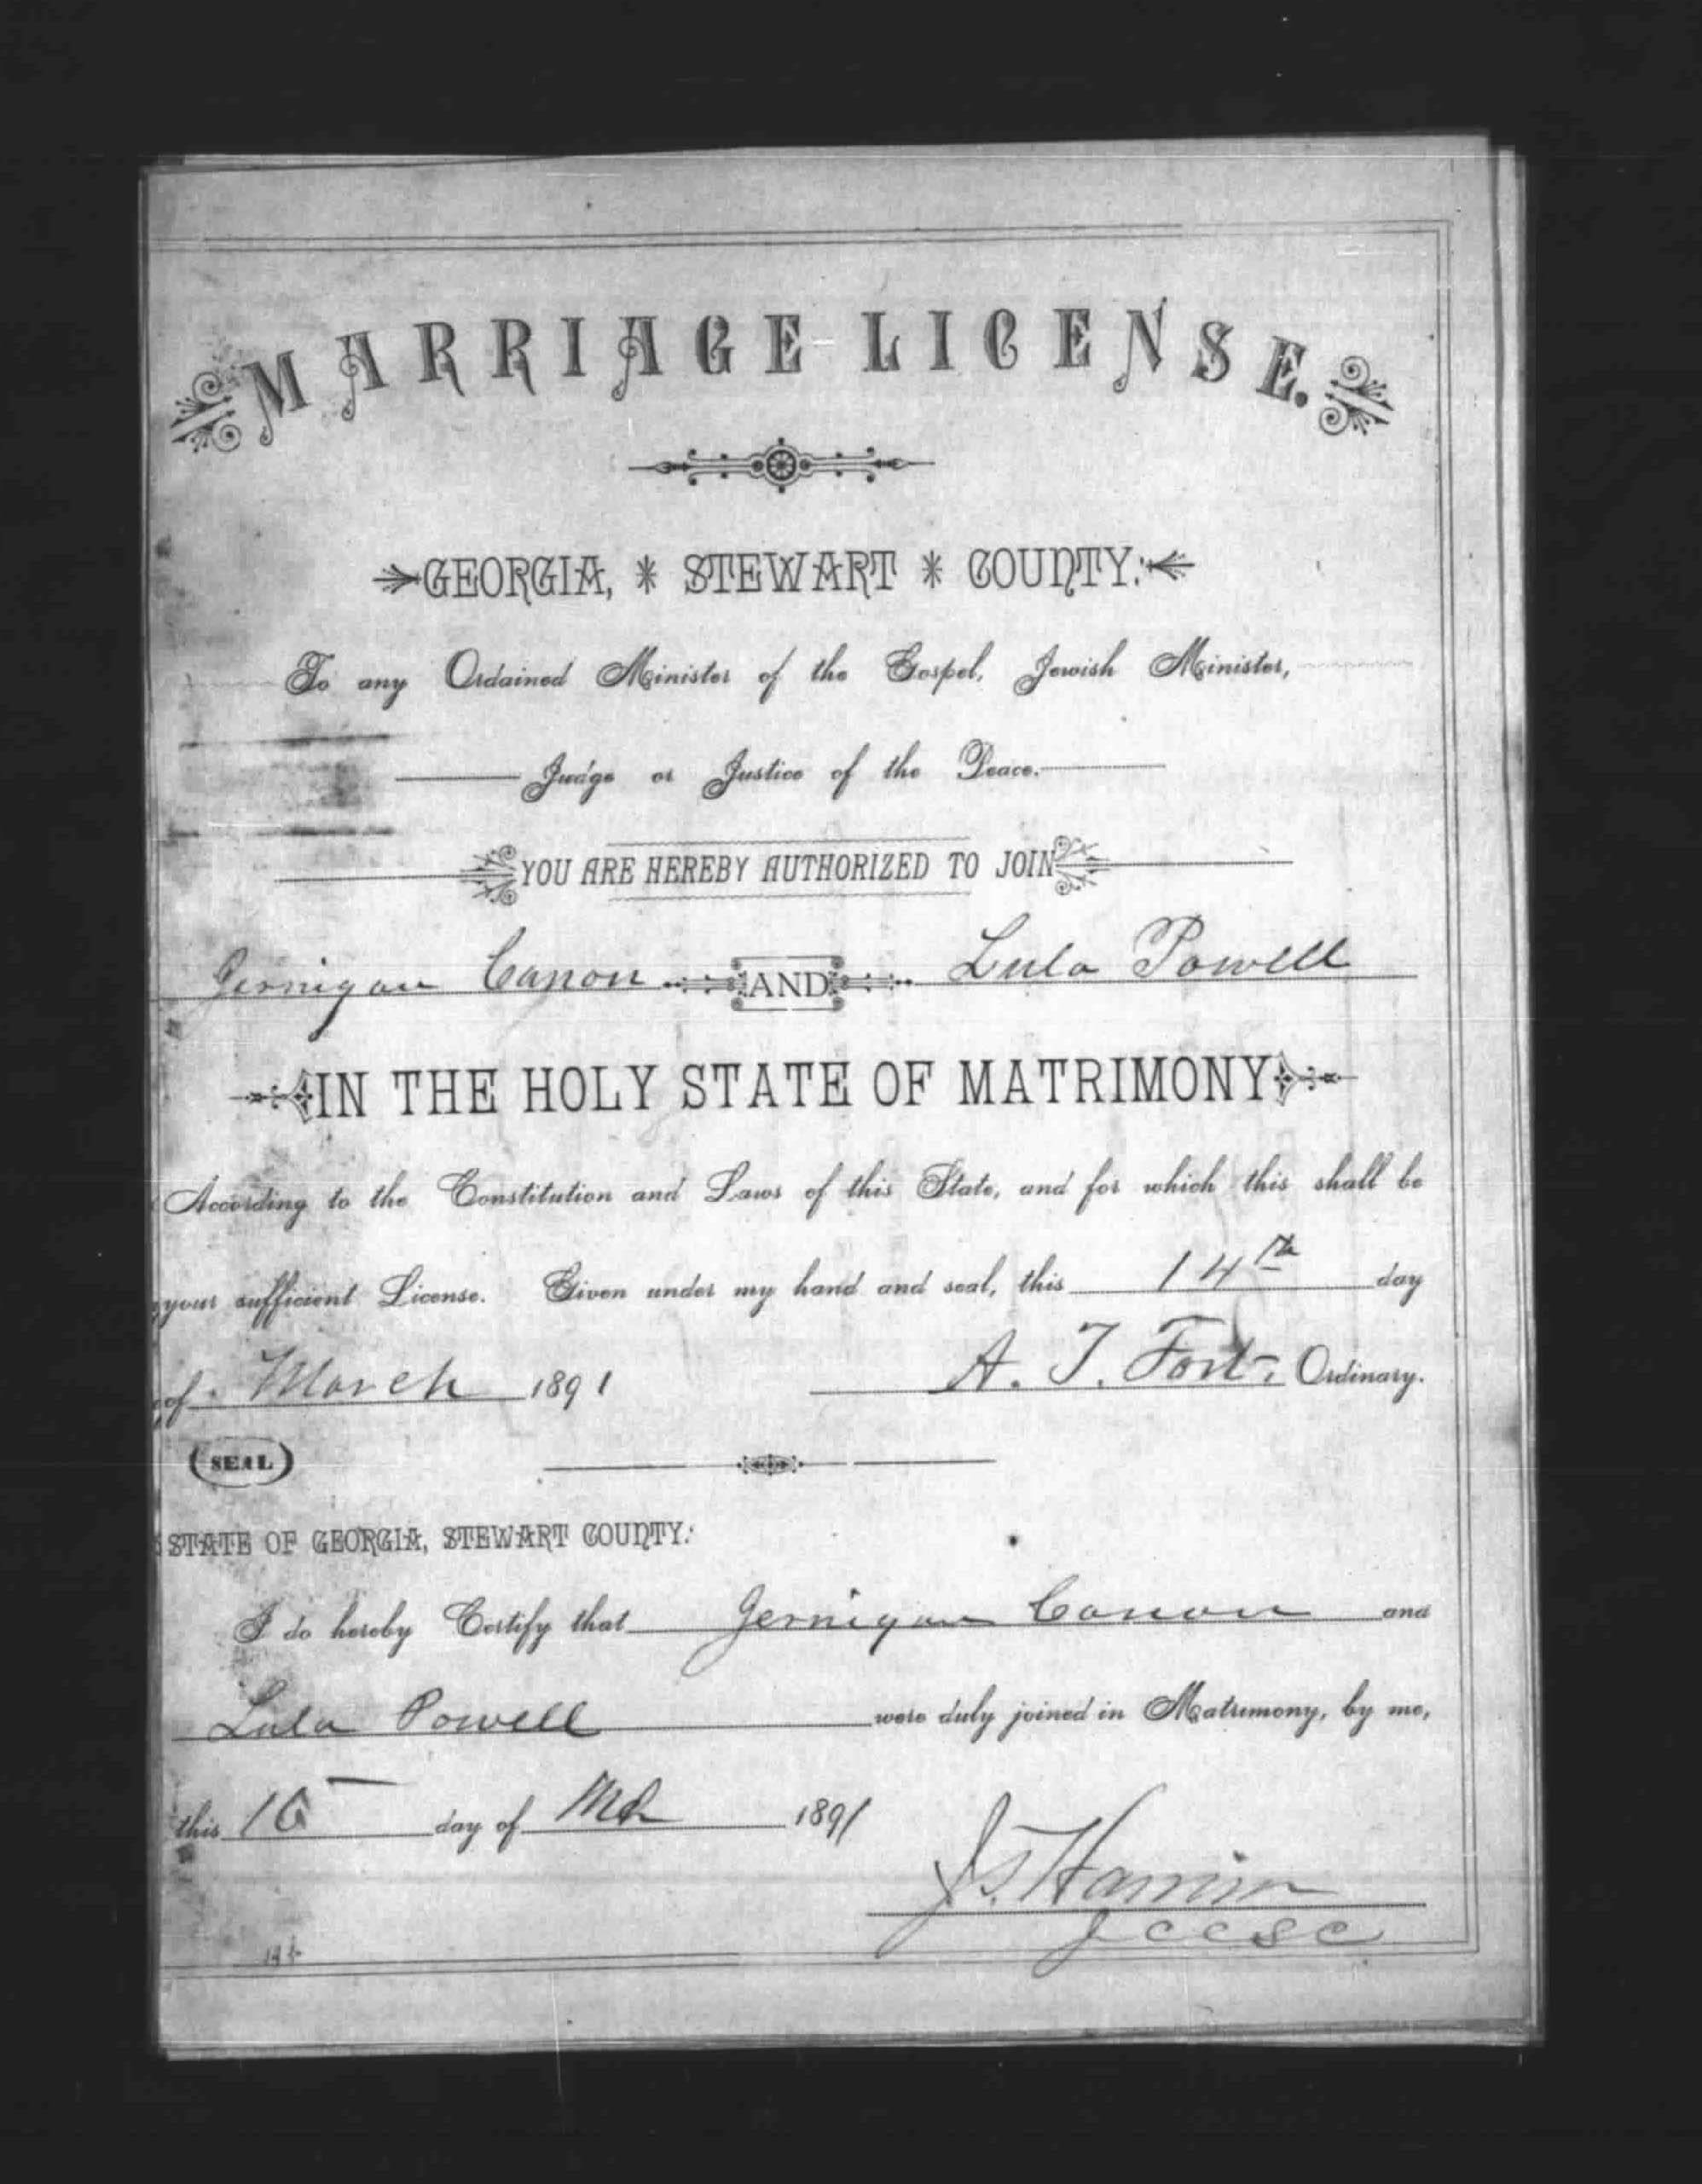 MARRIAGE LICENSE.
GEORGIA, * STEWART * COUNTY:
To any Ordained Minister of the Gospel, Jewish Minister,
Judge or Justice of the Peace.
YOU ARE HEREBY AUTHORIZED TO JOIN
Jernigan Canon AND Lula Powell
IN THE HOLY STATE OF MATRIMONY
According to the Constitution and Laws of this State, and for which this shall be
your sufficient License. Given under my hand and seal, this 14th day
of March 1891 A. T. Fort, Ordinary.
(SEAL)
STATE OF GEORGIA, STEWART COUNTY:
I do hereby Certify that Jernigan Canon and
Lula Powell were duly joined in Matrimony, by me,
this day of Mch 1891